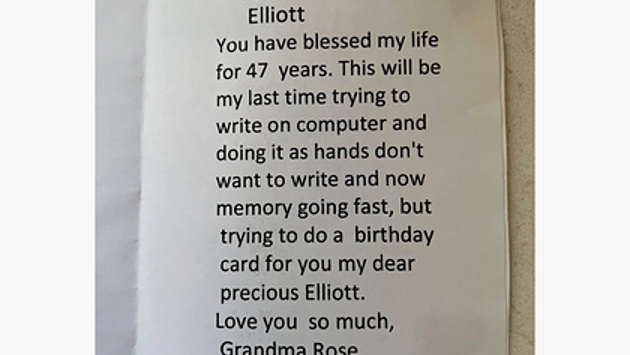 Elliott
You have blessed my life
for 47 years. This will be
my last time trying to
write on computer and
doing it as hands don't
want to write and now
memory going fast, but
trying to do a birthday
card for you my dear
precious Elliott.
Love you so much,
Grandma Rose